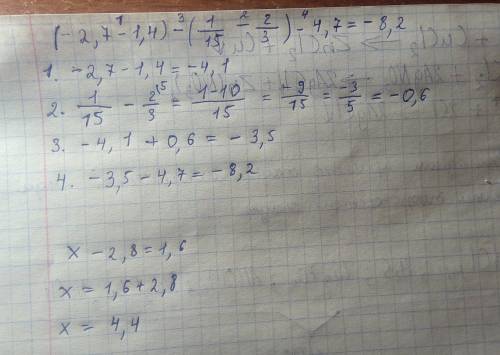 (-2,7 -¹ 1,4) -³ (1/15 -² 2/3) -⁴ 4,7 = -8,2
1. -2,7 - 1,4 = -4,1
2. 1/15 - 2/3 ⁽⁵ = 1-10/15 = -9/15 = -3/5 = -0,6
3. -4,1 + 0,6 = -3,5
4. -3,5 - 4,7 = -8,2
x - 2,8 = 1,6
x = 1,6 + 2,8
x = 4,4